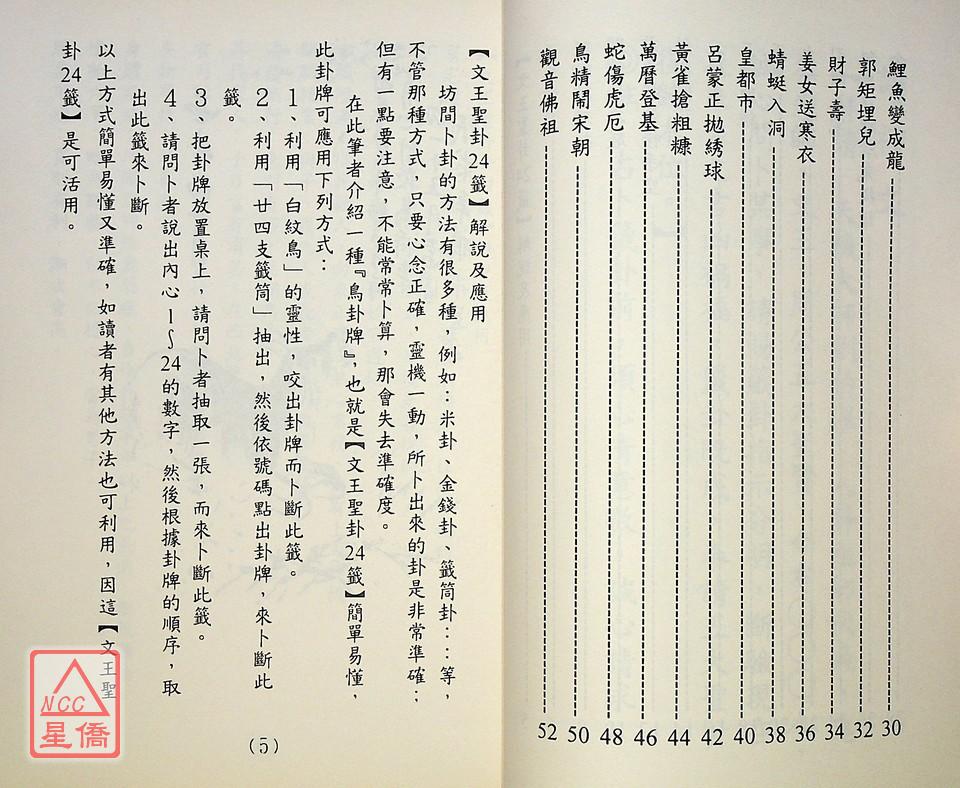 鯉魚變成龍 30
郭矩埋兒 32
財子壽 34
姜女送寒衣 36
蜻蜓入洞 38
皇都市 40
呂蒙正拋綉球 42
黃雀搶粗糠 44
萬曆登基 46
蛇傷虎厄 48
鳥精鬧宋朝 50
觀音佛祖 52
【文王聖卦24籤】解說及應用
坊間卜卦的方法有很多種，例如：米卦、金錢卦、籤筒卦……等，
不管那種方式，只要心念正確，靈機一動，所卜出來的卦是非常準確；
但有一點要注意，不能常常卜算，那會失去準確度。
在此筆者介紹一種『鳥卦牌』，也就是【文王聖卦24籤】簡單易懂，
此卦牌可應用下列方式：
1、利用「白紋鳥」的靈性，咬出卦牌而卜斷此籤。
2、利用「廿四支籤筒」抽出，然後依號碼點出卦牌，來卜斷此
籤。
3、把卦牌放置桌上，請問卜者抽取一張，而來卜斷此籤。
4、請問卜者說出內心1～24的數字，然後根據卦牌的順序，取
出此籤來卜斷。
以上方式簡單易懂又準確，如讀者有其他方法也可利用，因這【文王聖
卦24籤】是可活用。
（5）
NCC
星僑